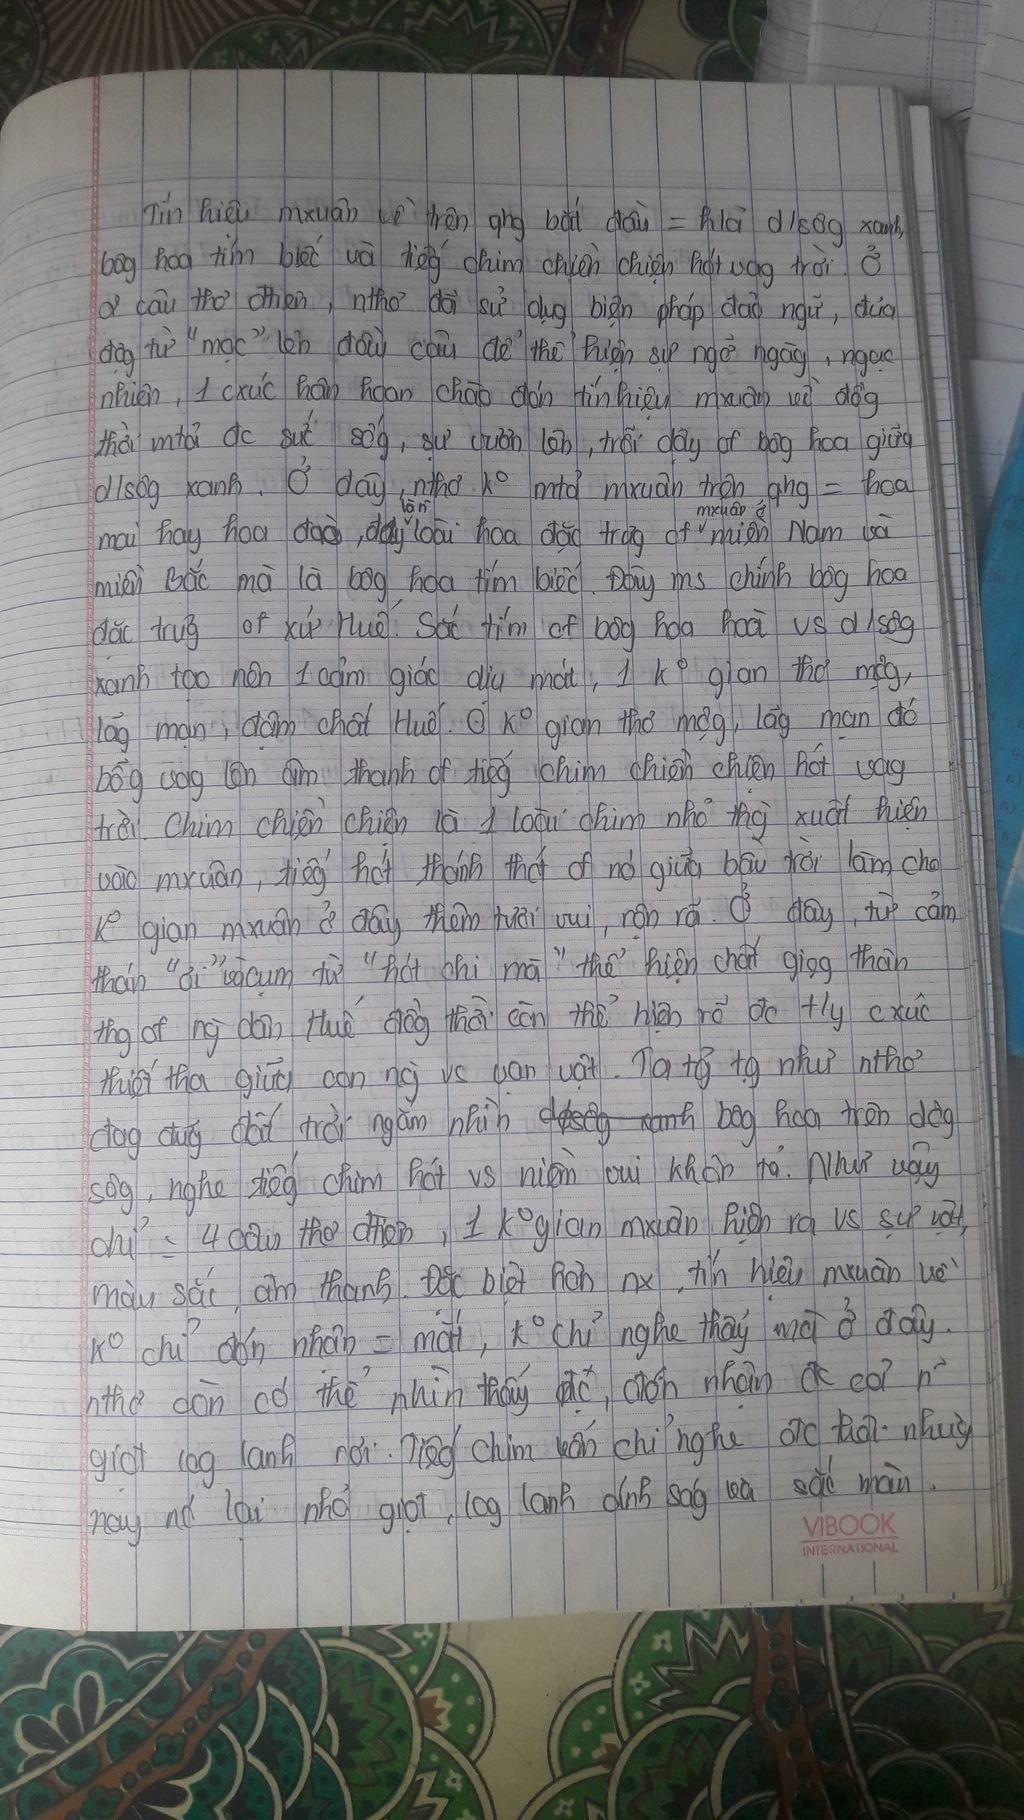 Tín hiệu mxuân về trên qhg bắt đầu = h/ả d/sôg xanh,
bôg hoa tím biếc và tiếg chim chiền chiện hót vag trời. Ở
2 câu thơ đtiên, nthơ đã sử dụg biện pháp đảo ngữ, đưa
độg từ "mọc" lên đầu câu để thể hiện sự ngỡ ngàg, ngạc
nhiên, 1 cxúc hân hoan chào đón tín hiệu mxuân về đồg
thời mtả đc sức sốg, sự vươn lên, trỗi dậy of bôg hoa giữa
d/sôg xanh. Ở đây, nthơ kº mtả mxuân trên qhg = hoa
mai hay hoa đào, loài hoa đặc trưg of mxuân ở miền Nam và
miền Bắc mà là bôg hoa tím biếc. Đây ms chính bôg hoa
đặc trưg of xứ Huế. Sắc tím of bôg hoa hoà vs d/sôg
xanh tạo nên 1 cảm giác dịu mát, 1 kº gian thơ mộg,
lãg mạn, đậm chất Huế. Ở kº gian thơ mộg, lãg mạn đó
bỗg vag lên âm thanh of tiếg chim chiền chiện hót vag
trời. Chim chiền chiện là 1 loài chim nhỏ thg xuất hiện
vào mxuân, tiếg hót thánh thót of nó giữa bầu trời làm cho
kº gian mxuân ở đây thêm tươi vui, rộn rã. Ở đây, từ cảm
thán "ơi" và cụm từ "hót chi mà" thể hiện chất giọg thân
thg of ng dân Huế đồg thời còn thể hiện rõ đc t/ly cxúc
thiết tha giữa con ng vs vạn vật. Ta tg tg như nthơ
đag đứg đất trời ngắm nhìn d/sôg xanh bôg hoa trên dòg
sôg, nghe tiếg chim hót vs niềm vui khôn tả. Như vậy
chỉ = 4 câu thơ đtiên, 1 kº gian mxuân hiện ra vs sự vật,
màu sắc, âm thanh. Đặc biệt hơn nx, tín hiệu mxuân về
kº chỉ đón nhận = mắt, kº chỉ nghe thấy mà ở đây.
nthơ còn có thể nhìn thấy đc, đón nhận đc cả n~
giọt log lanh rơi. Tiếg chim vốn chỉ nghe đc thôi nhưg
nay nó lại nhỏ giọt, log lanh ánh ság và sắc màu.
VIBOOK
INTERNATIONAL